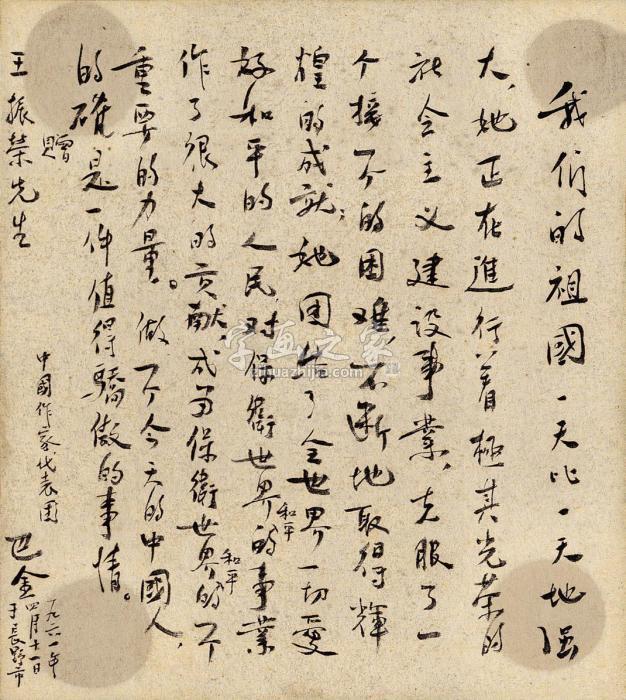 我们的祖國一天比一天地强
大，她正在進行着極其光荣的
社会主义建设事業，克服了一
个接一个的困难，不断地取得輝
煌的成就；她团结了全世界一切爱
好和平的人民，对保衛世界和平的事業
作了很大的贡献，成为保衛世界和平的一个
重要的力量。做一个今天的中國人，
的確是一件值得驕傲的事情。
贈
王振榮先生
中國作家代表団
巴金
一九六一年
四月十一日
于長野市
字画之家
zihuazhijia.com